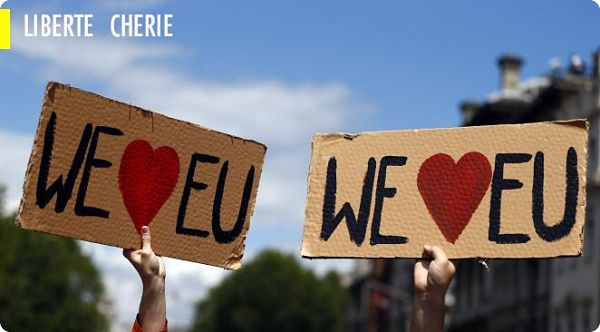 LIBERTE CHERIE
WE ❤ EU
WE ❤ EU